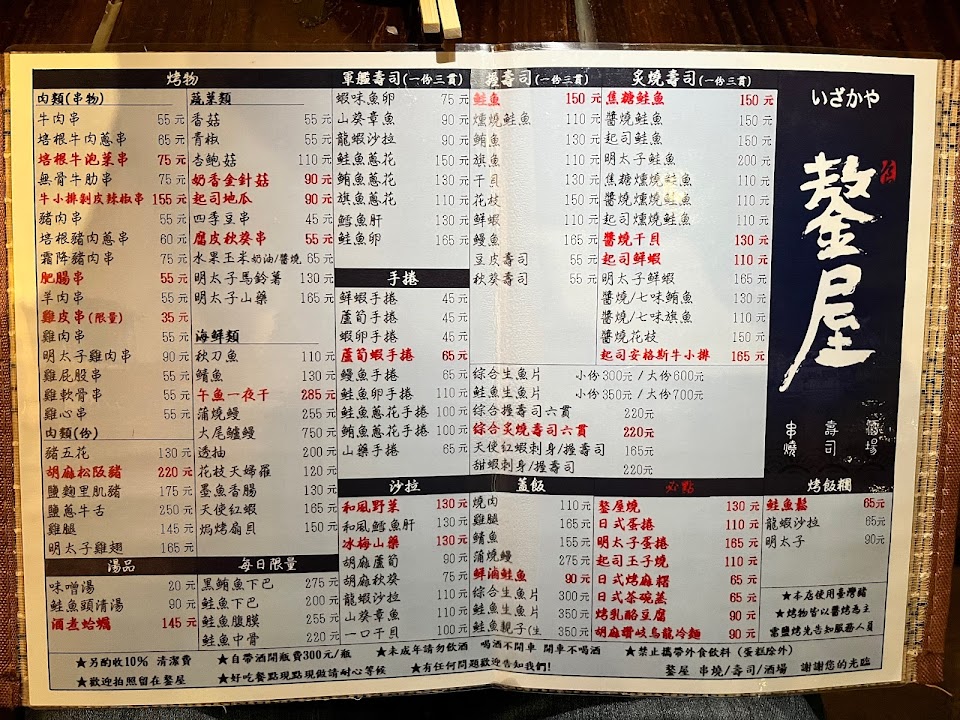 烤物
肉類(串物)
牛肉串 55元
培根牛肉蔥串 65元
培根牛泡菜串 75元
無骨牛肋串 75元
牛小排剝皮辣椒串 155元
豬肉串 55元
培根豬肉蔥串 60元
霜降豬肉串 75元
肥腸串 55元
羊肉串 55元
雞皮串(限量) 35元
雞肉串 55元
明太子雞肉串 90元
雞屁股串 55元
雞軟骨串 55元
雞心串 55元
肉類(份)
豬五花 130元
胡麻松阪豬 220元
鹽麴里肌豬 175元
鹽蔥牛舌 250元
雞腿 145元
明太子雞翅 165元
蔬菜類
香菇 55元
青椒 55元
杏鮑菇 110元
奶香金針菇 90元
起司地瓜 90元
四季豆串 45元
腐皮秋葵串 55元
水果玉米奶油/醬燒 65元
明太子馬鈴薯 130元
明太子山藥 165元
海鮮類
秋刀魚 110元
鯖魚 130元
午魚一夜干 285元
蒲燒鰻 255元
大尾鱸鰻 750元
透抽 200元
花枝天婦羅 120元
墨魚香腸 130元
天使紅蝦 165元
焗烤扇貝 150元
湯品
味噌湯 20元
鮭魚頭清湯 90元
酒煮蛤蠣 145元
每日限量
黑鮪魚下巴 275元
鮭魚下巴 200元
鮭魚腹膜 255元
鮭魚中骨 220元
軍艦壽司(一份三貫)
蝦味魚卵 75元
山葵章魚 90元
龍蝦沙拉 90元
鮭魚蔥花 150元
鮪魚蔥花 130元
旗魚蔥花 110元
鱈魚肝 130元
鮭魚卵 165元
手捲
鮮蝦手捲 45元
蘆筍手捲 45元
蝦卵手捲 45元
蘆筍蝦手捲 65元
鰻魚手捲 65元
鮭魚卵手捲 110元
鮭魚蔥花手捲 100元
鮪魚蔥花手捲 100元
山藥手捲 65元
沙拉
和風野菜 130元
和風鱈魚肝 130元
冰梅山藥 130元
胡麻蘆筍 90元
胡麻秋葵 75元
龍蝦沙拉 110元
山葵章魚 110元
一口干貝 100元
握壽司(一份三貫)
鮭魚 150元
燻燒鮭魚 110元
鮪魚 130元
旗魚 110元
干貝 130元
花枝 150元
鮮蝦 110元
鰻魚 165元
豆皮壽司 55元
秋葵壽司 55元
炙燒壽司(一份三貫)
焦糖鮭魚 150元
醬燒鮭魚 150元
起司鮭魚 150元
明太子鮭魚 200元
焦糖燻燒鮭魚 110元
醬燒燻燒鮭魚 110元
起司燻燒鮭魚 110元
醬燒干貝 130元
起司鮮蝦 110元
明太子鮮蝦 165元
醬燒/七味鮪魚 130元
醬燒/七味旗魚 110元
醬燒花枝 150元
起司安格斯牛小排 165元
綜合生魚片 小份300元/大份600元
鮭魚生魚片 小份350元/大份700元
綜合握壽司六貫 220元
綜合炙燒壽司六貫 220元
天使紅蝦刺身/握壽司 165元
甜蝦刺身/握壽司 220元
蓋飯
燒肉 110元
雞腿 165元
鯖魚 155元
蒲燒鰻 275元
鮮滷鮭魚 90元
綜合生魚片 300元
鮭魚生魚片 350元
鮭魚親子(生 350元
必點
鏊屋燒 130元
日式蛋捲 110元
明太子蛋捲 165元
起司玉子燒 110元
日式烤麻糬 65元
日式茶碗蒸 65元
烤乳酪豆腐 90元
胡麻讚岐烏龍冷麵 90元
烤飯糰
鮭魚鬆 65元
龍蝦沙拉 65元
明太子 90元
★本店使用臺灣豬
★烤物皆以醬烤為主
需鹽烤先告知服務人員
いざかや
鏊屋
串燒
壽司
酒場
★另酌收10% 清潔費 ★自帶酒開瓶費300元/瓶 ★未成年請勿飲酒 喝酒不開車 開車不喝酒 ★禁止攜帶外食飲料(蛋糕除外)
★歡迎拍照留在鏊屋 ★好吃餐點現點現做請耐心等候 ★有任何問題歡迎告知我們! 鏊屋 串燒/壽司/酒場 謝謝您的光臨